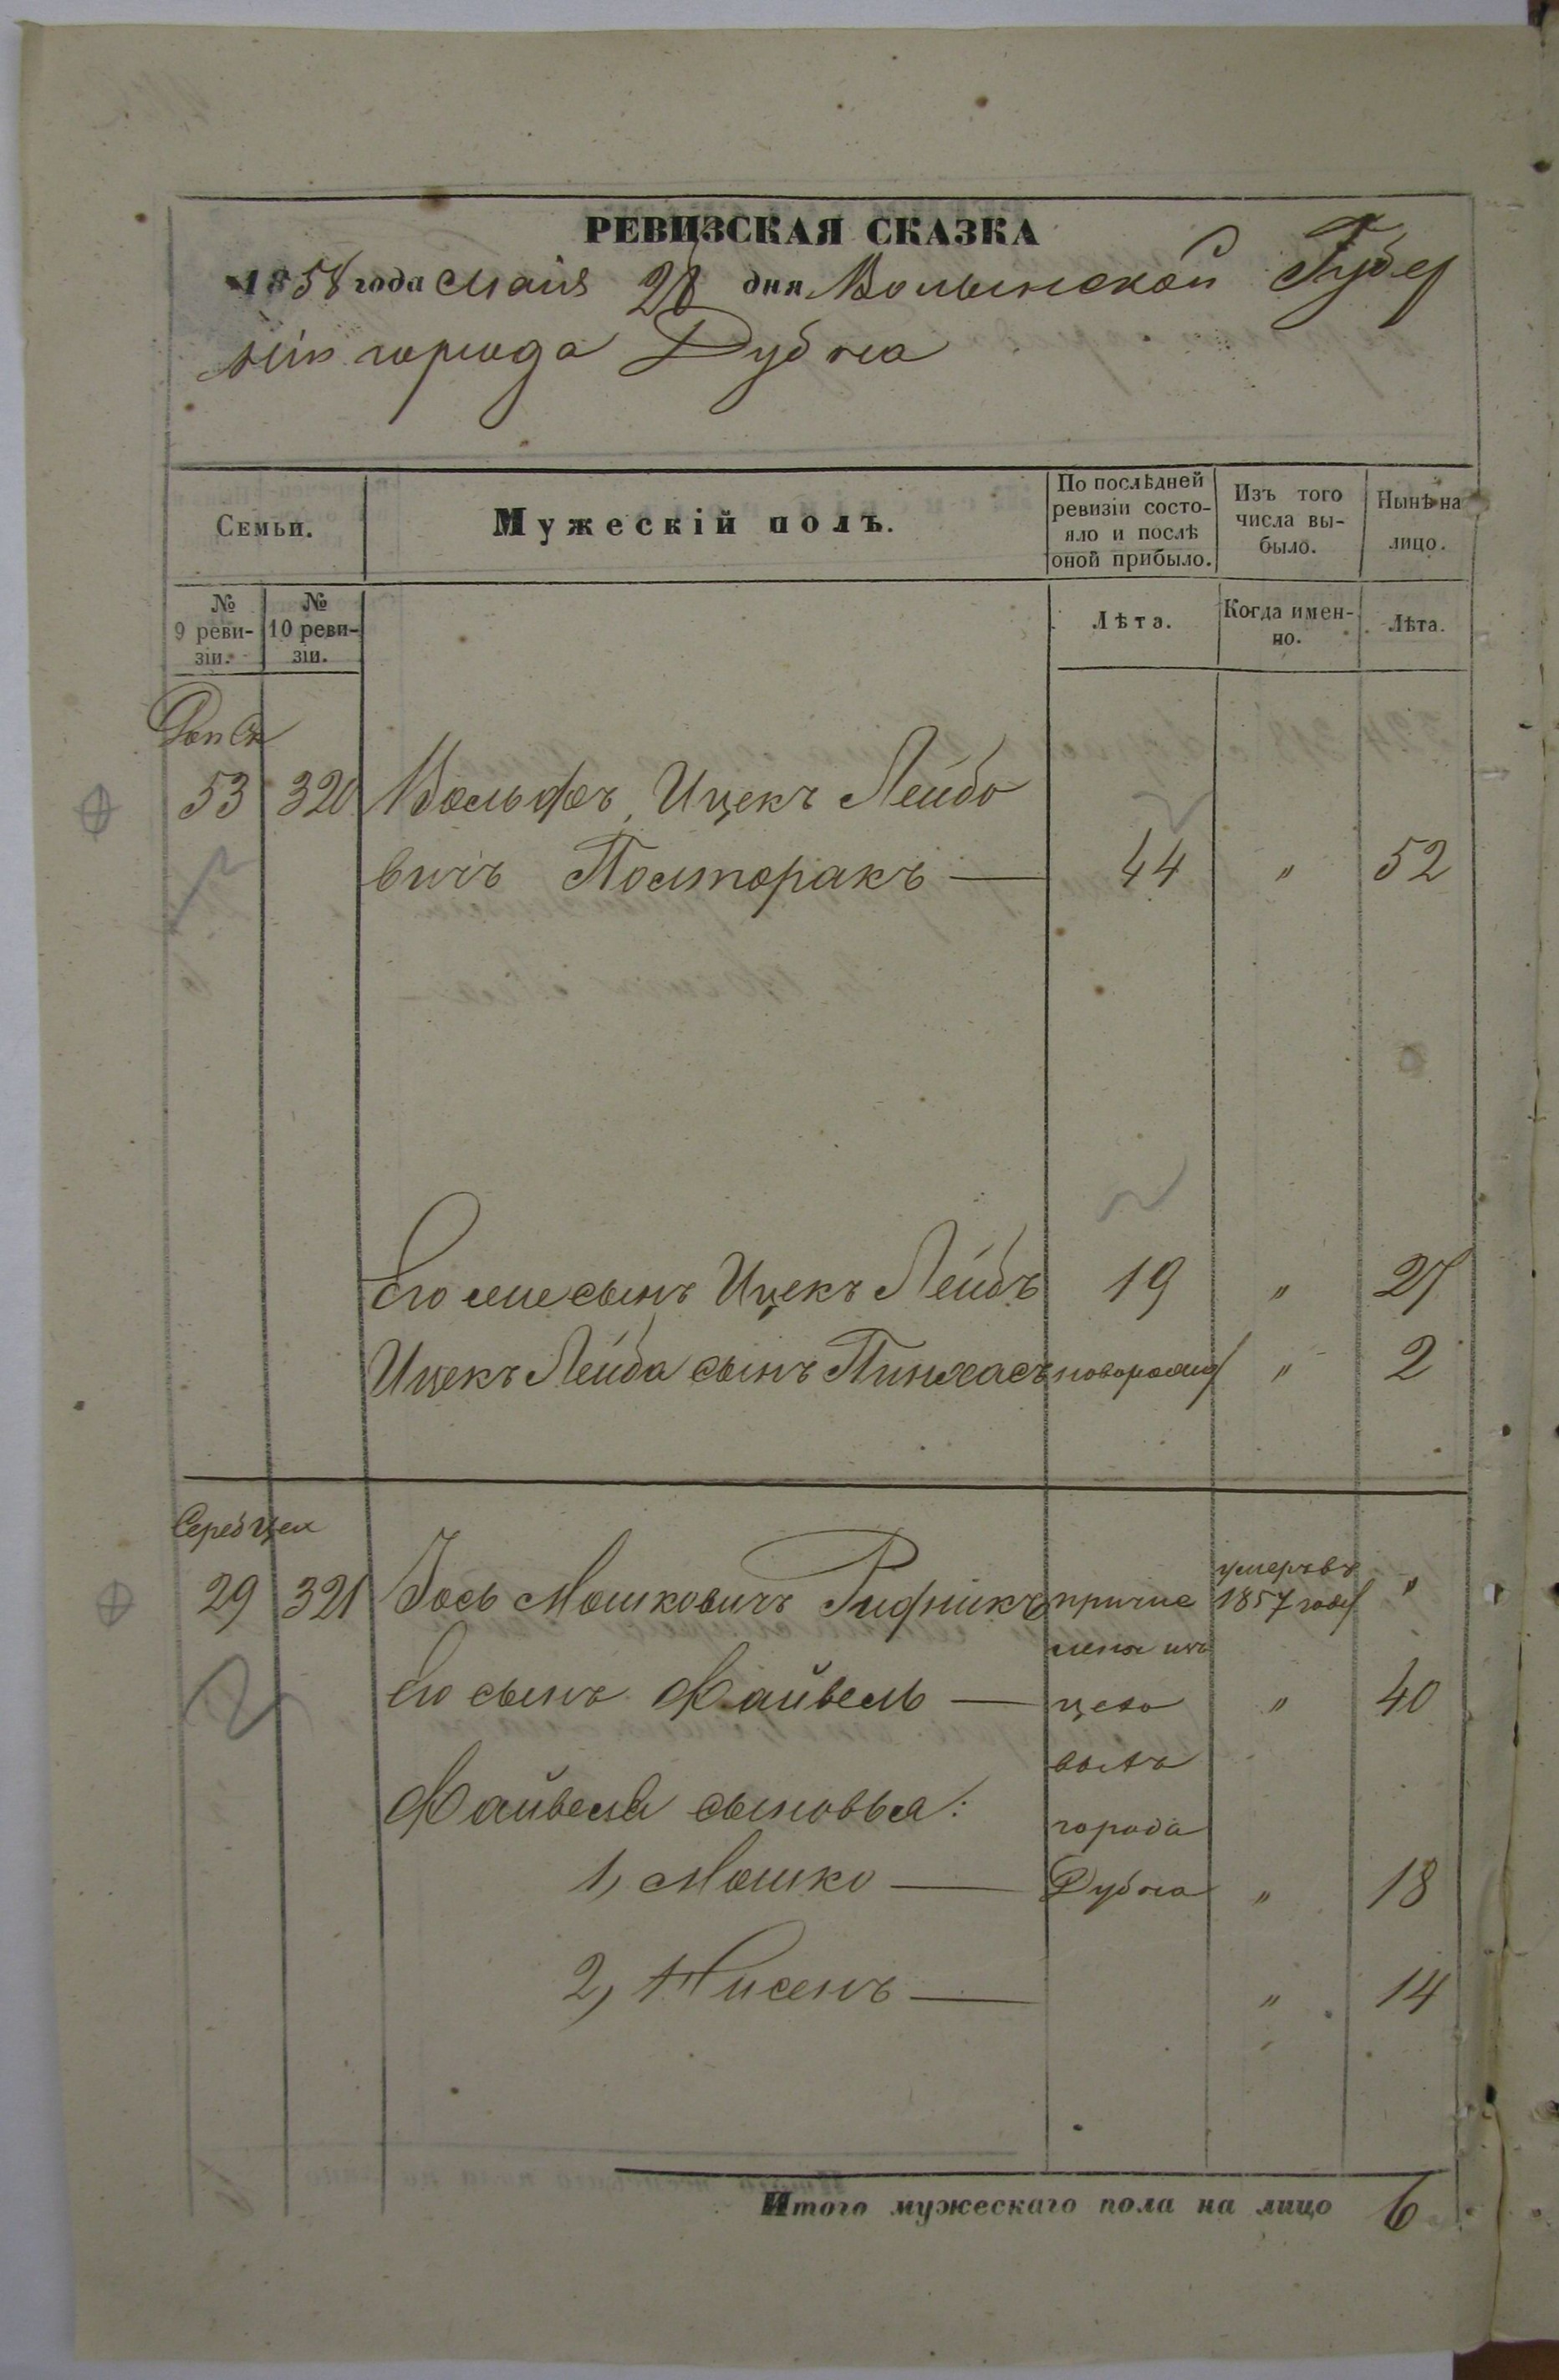 РЕВИЗСКАЯ СКАЗКА
1858 года Маія 28 дня Волынской Губер
ніи города Дубна
Семьи.
Мужескій полъ.
По послѣдней ревизіи состо-
яло и послѣ оной прибыло.
Изъ того числа вы-
было.
Нынѣ на лицо.
№ 9 реви-
зіи.
№ 10 реви-
зіи.
Лѣта.
Когда имен-
но.
Лѣта.
53 320 Вольфъ Ицекъ Лейбо
вичъ Полторакъ — 44 " 52
Его же сынъ Ицекъ Лейбъ 19 " 27
Ицекъ Лейба сынъ Пинхасъ новорожд " 2
Серебцех
29 321 Іось Мошковичъ Рифникъ
причис
ленъ изъ
цехо
выхъ
города
Дубна
умеръ въ
1857 году "
Его сынъ Файвель — " 40
Файвеля сыновья:
1, Мошко — " 18
2, Нисенъ — " 14
Итого мужескаго пола на лицо 6